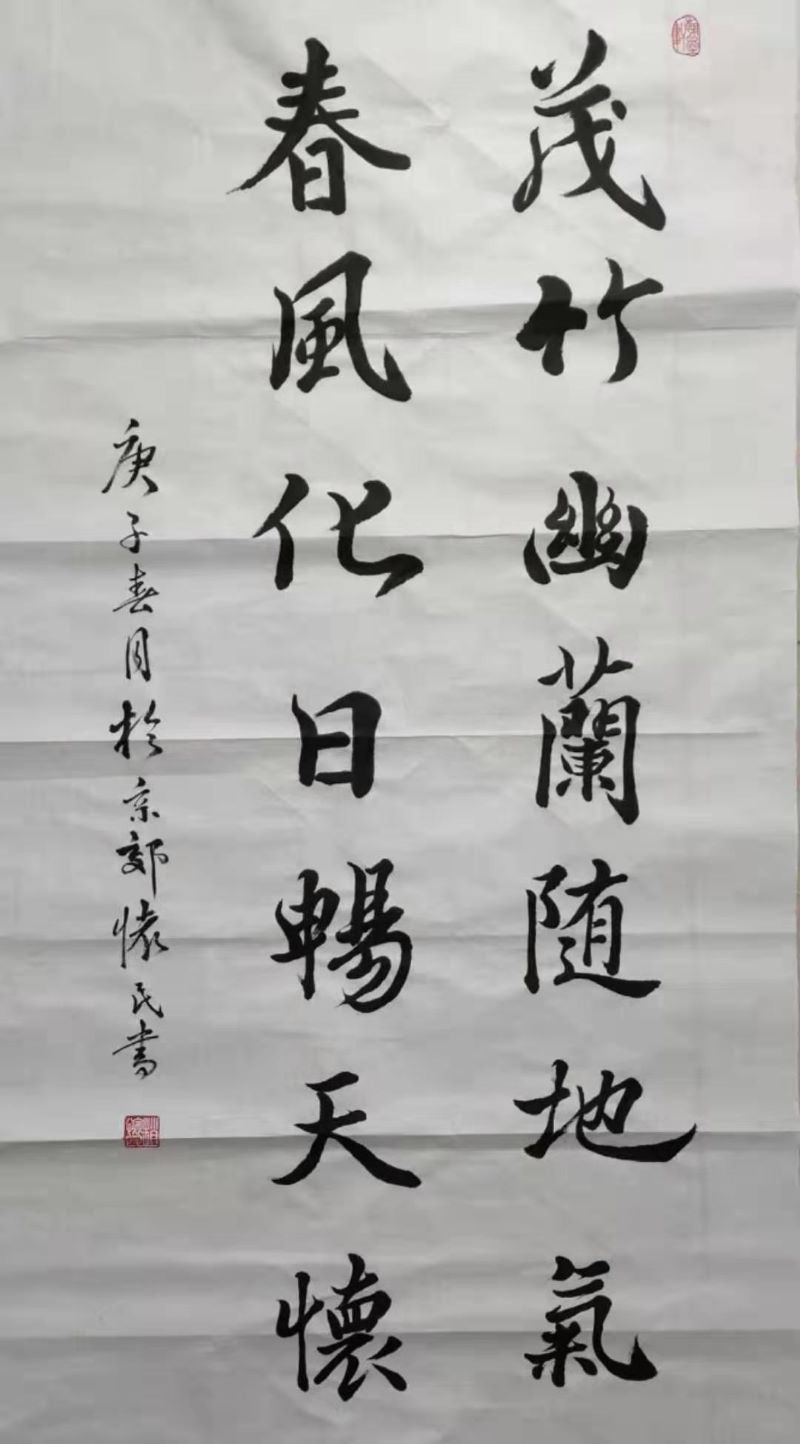 茂竹幽蘭随地氣
春風化日暢天懷
庚子春月於京郊懷民书